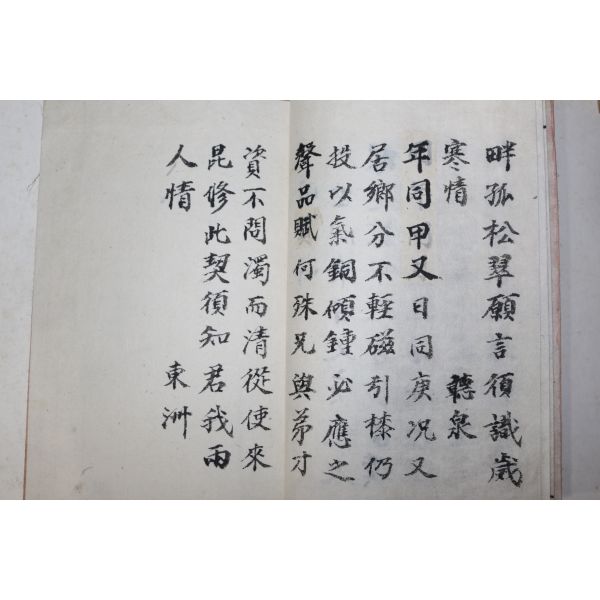 畔孤松翠願言須識歲
寒情　聽泉
年同甲又日同庚况又
居鄉分不輕磁引㯃仍
投以氣銅傾鍾必應之
聲品賦何殊兄與弟才
資不問濁而清從使來
昆修此契須知君我兩
人情　東洲